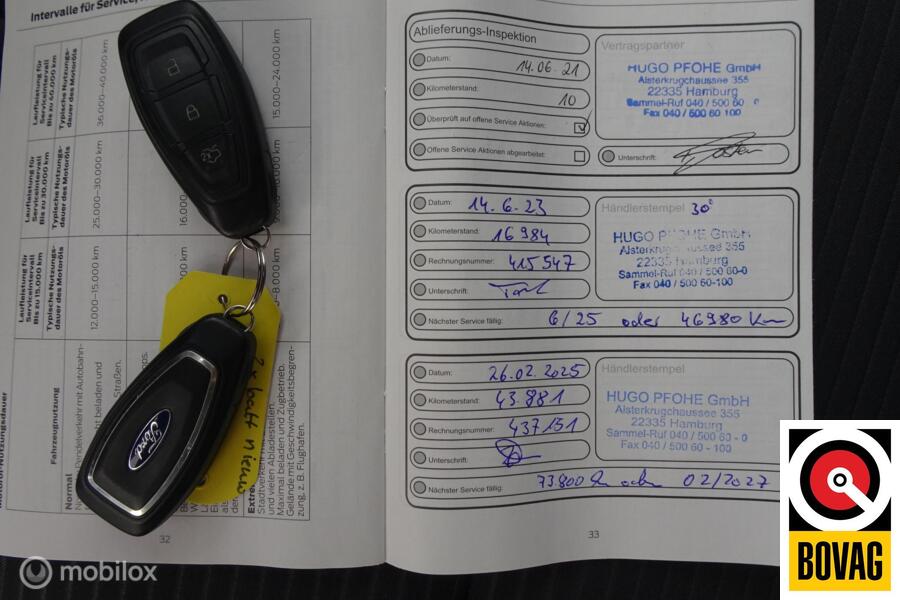 Intervalle für Service,
Laufleistung für
Serviceintervall
Bis zu 40.000 km
Typische Nutzungs-
dauer des Motoröls
36.000–40.000 km
15.000–24.000 km
Laufleistung für
Serviceintervall
Bis zu 30.000 km
Typische Nutzungs-
dauer des Motoröls
25.000–30.000 km
16.000
Laufleistung für
Serviceintervall
Bis zu 15.000 km
Typische Nutzungs-
dauer des Motoröls
12.000–15.000 km
8.000 km
Fahrzeugnutzung
Normal
Pendelverkehr mit Autobahn-
beladen und
Straßen.
und vielen Abladestellen.
Maximal beladen und Zugbetrieb.
Gelände mit Geschwindigkeitsbegren-
zung, z. B. Flughafen.
32
Ford
Ablieferungs-Inspektion
Datum: 14.06.21
Kilometerstand: 10
Überprüft auf offene Service Aktionen:
Offene Service Aktionen abgearbeitet:
Vertragspartner
HUGO PFOHE GmbH
Alsterkrugchaussee 355
22335 Hamburg
Sammel-Ruf 040 / 500 60 0
Fax 040 / 500 60 100
Unterschrift:
Datum: 14.6.23
Kilometerstand: 16984
Rechnungsnummer: 415547
Unterschrift:
Händlerstempel 30°
HUGO PFOHE GmbH
Alsterkrugchaussee 355
22335 Hamburg
Sammel-Ruf 040 / 500 60-0
Fax 040 / 500 60-100
Nächster Service fällig: 6/25 oder 46980 Km
Datum: 26.02.2025
Kilometerstand: 43.881
Rechnungsnummer: 437151
Unterschrift:
Händlerstempel
HUGO PFOHE GmbH
Alsterkrugchaussee 355
22335 Hamburg
Sammel-Ruf 040 / 500 60 - 0
Fax 040 / 500 60 - 100
Nächster Service fällig: 73800 02/2027
33
mobilox
BOVAG